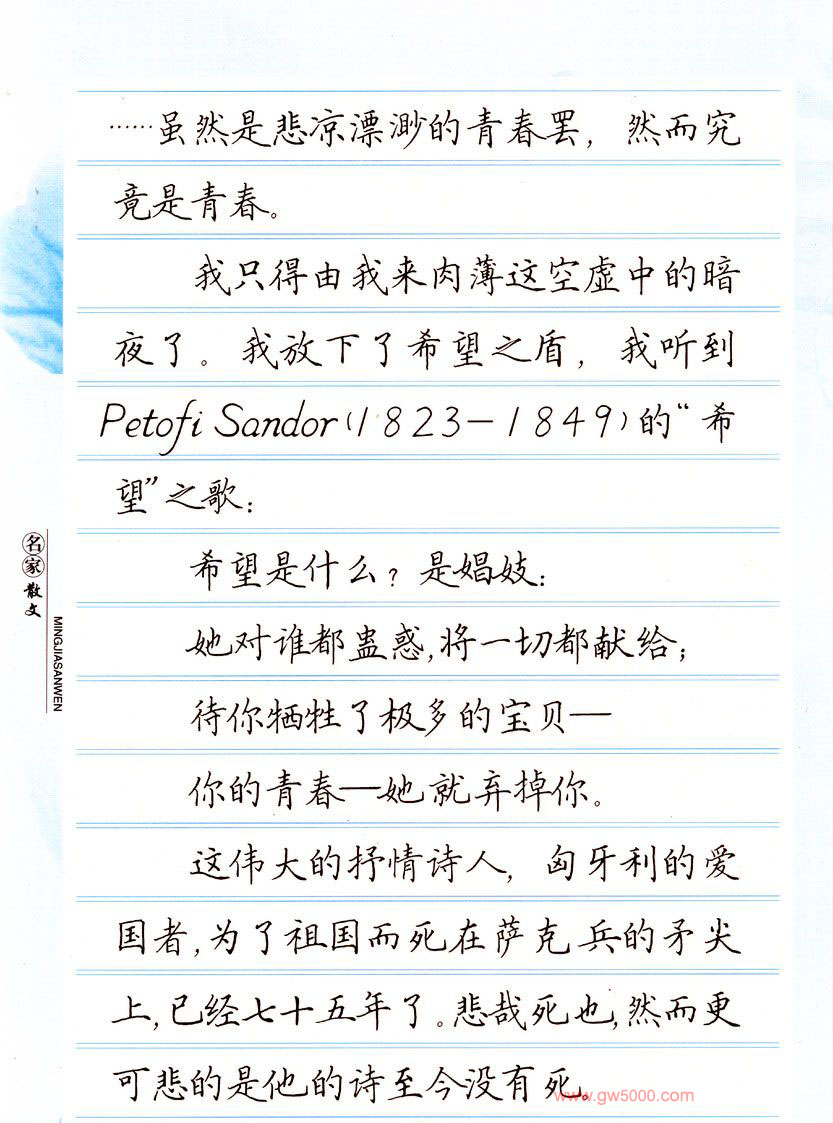 ……虽然是悲凉漂渺的青春罢，然而究
竟是青春。
我只得由我来肉薄这空虚中的暗
夜了。我放下了希望之盾，我听到
Petofi Sandor(1823—1849)的“希
望”之歌：
希望是什么？是娼妓：
她对谁都蛊惑，将一切都献给；
待你牺牲了极多的宝贝—
你的青春—她就弃掉你。
这伟大的抒情诗人，匈牙利的爱
国者，为了祖国而死在萨克兵的矛尖
上，已经七十五年了。悲哉死也，然而更
可悲的是他的诗至今没有死。
名家散文
MINGJIASANWEN
www.gw5000.com